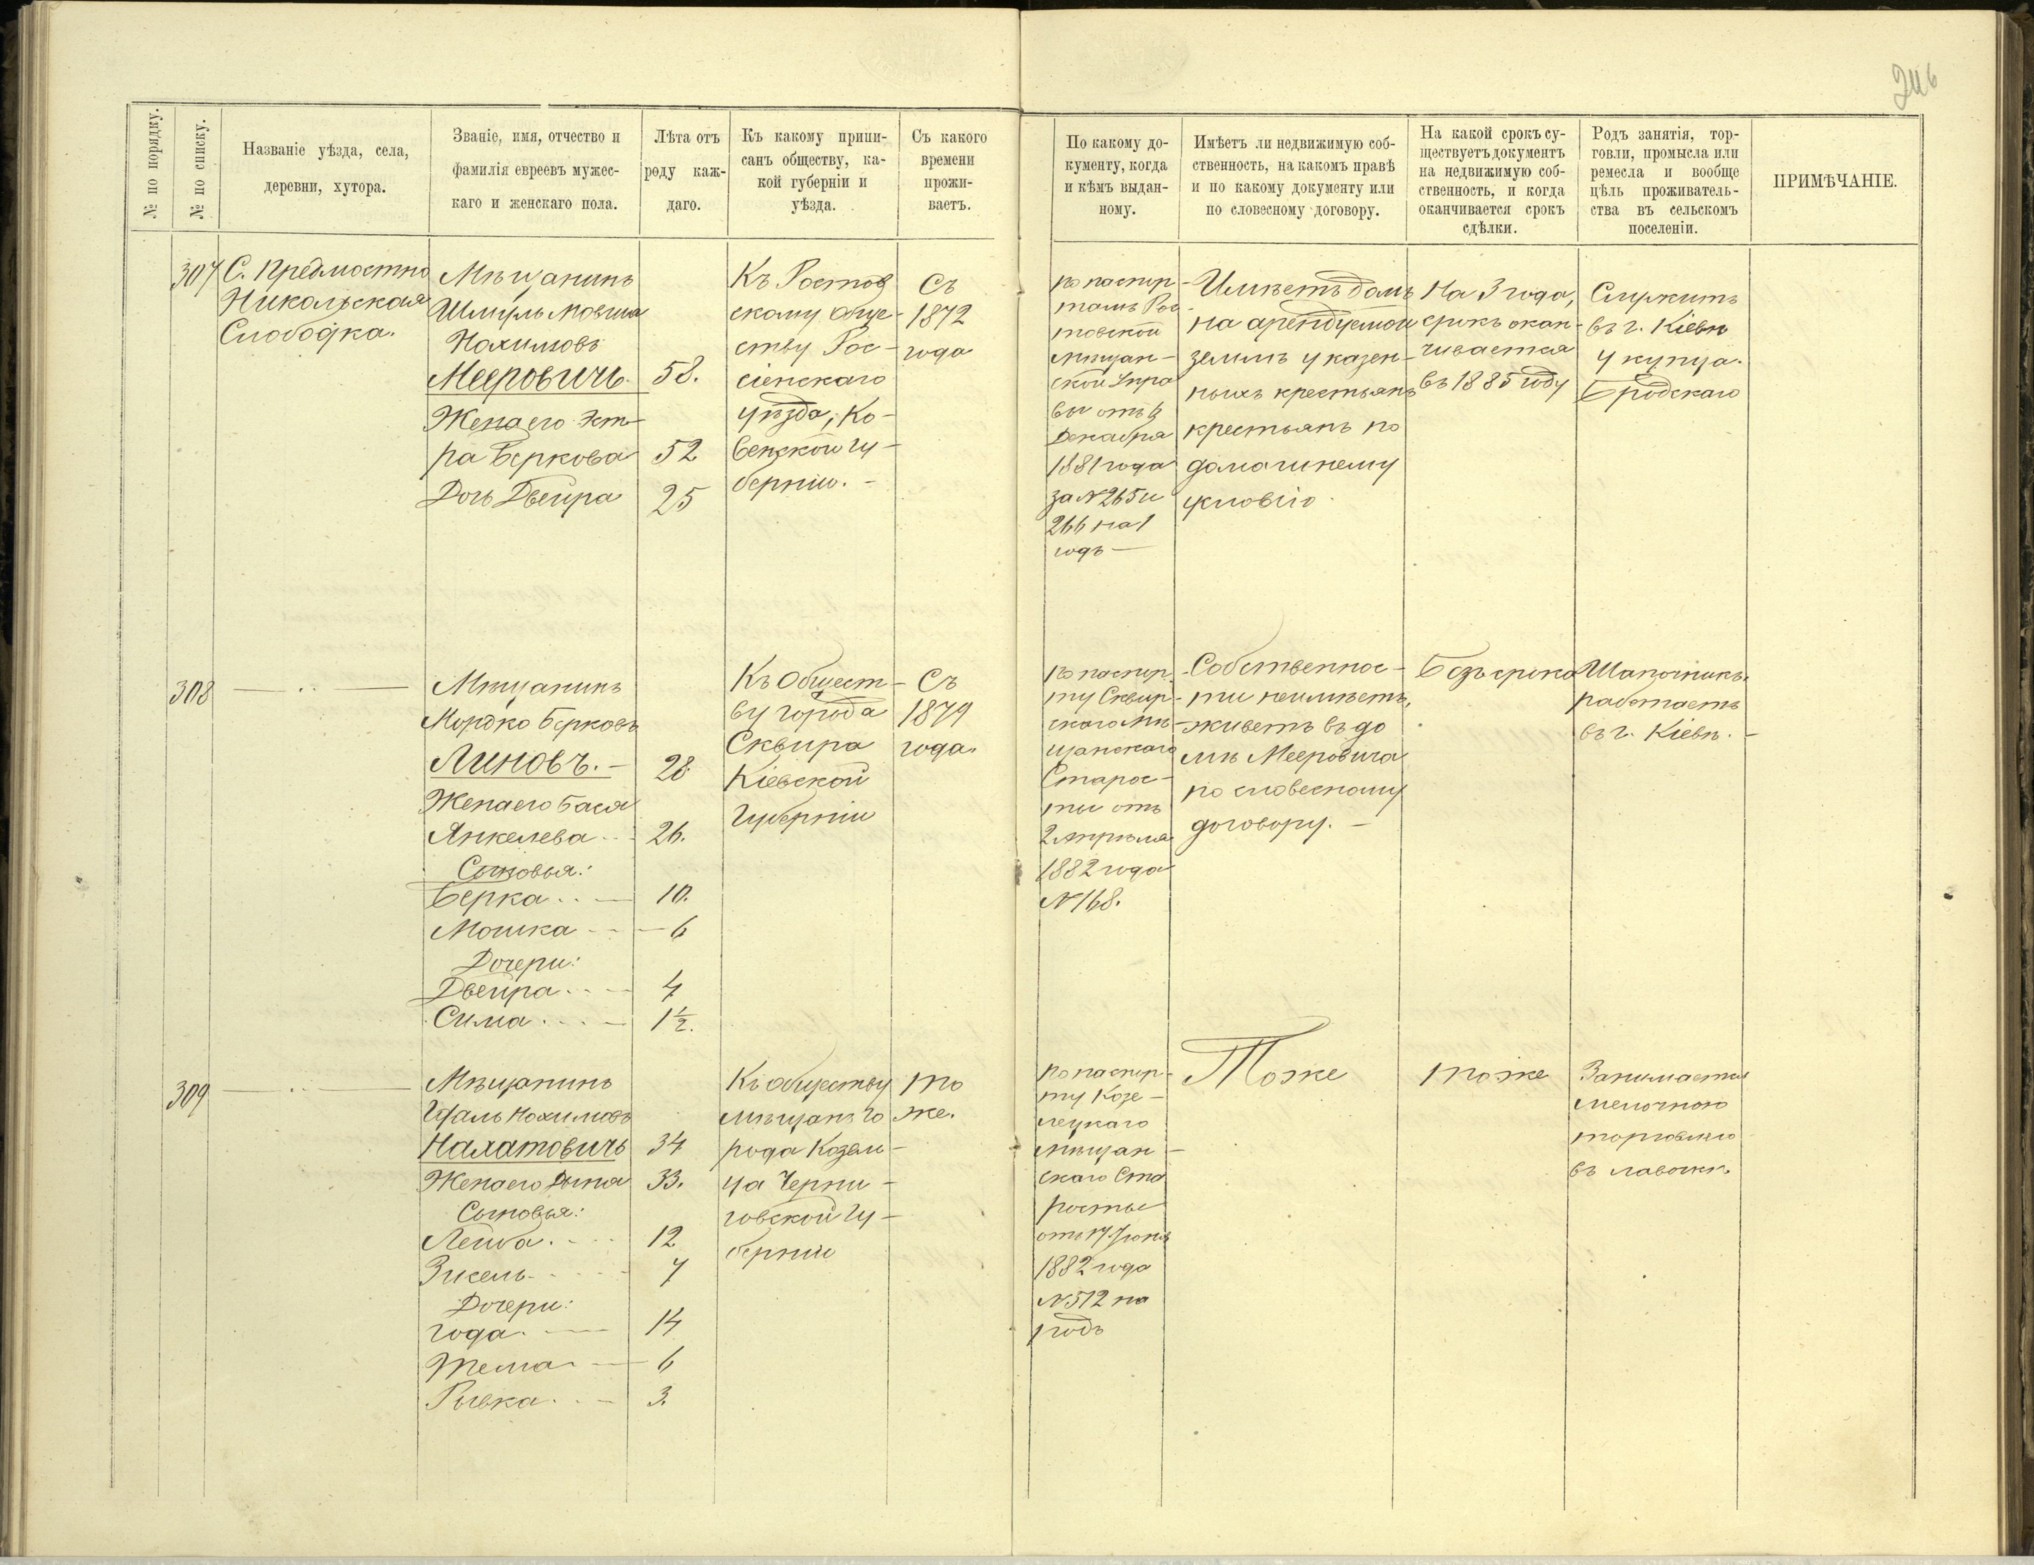 246
№ по порядку.
№ по списку.
Названіе уѣзда, села,
деревни, хутора.
Званіе, имя, отчество и
фамилія евреевъ мужес-
каго и женскаго пола.
Лѣта отъ
роду каж-
даго.
Къ какому припи-
санъ обществу, ка-
кой губерніи и
уѣзда.
Съ какого
времени
прожи-
ваетъ.
По какому до-
кументу, когда
и кѣмъ выдан-
ному.
Имѣетъ ли недвижимую соб-
ственность, на какомъ правѣ
и по какому документу или
по словесному договору.
На какой срокъ су-
ществуетъ документъ
на недвижимую соб-
ственность, и когда
оканчивается срокъ
сдѣлки.
Родъ занятія, тор-
говли, промысла или
ремесла и вообще
цѣль проживатель-
ства въ сельскомъ
поселеніи.
ПРИМѢЧАНІЕ.
307
С. Предмостно
Никольская
Слободка.
Мѣщанинъ
Шмуль Мовша
Нохимовъ
Мееровичъ. 58.
Жена его Эст-
ра Беркова 52
Дочь Двейра 25
Къ Ростов
скому обще-
ству Рос-
сіенскаго
уѣзда, Ко-
венской гу-
берніи. -
Съ
1872
года
по паспор-
тамъ Рос-
товской
мѣщан-
ской Упра
вы отъ
Декабря
1881 года
за № 265 и
266 на 1
годъ —
Имѣетъ домъ
на арендуемой
землѣ у казен-
ныхъ крестьянъ
крестьянъ по
домашнему
условію.
На 3 года,
срокъ окан-
чивается
въ 1885 году
Служитъ
въ г. Кіевѣ
у купца.
Бродскаго
308 — ·· —
Мѣщанинъ
Мордко Берковъ
Линовъ. — 28
Жена его Бася
Янкелева 26.
Сыновья:
Берка . . — 10.
Мошка — 6
Дочери:
Двейра . . — 4
Сима . . . — 1½.
Къ Общест-
ву города
Сквира
Кіевской
Губерніи
Съ
1879
года.
по паспор-
ту Сквир-
скаго мѣ-
щанскаго
Старос-
ты отъ
2 Апрѣля
1882 года
№ 168.
Собственнос-
ти не имѣетъ,
живетъ въ до
мѣ Мееровича
по словесному
договору. —
Безъ срока
Шапочникъ,
работаетъ
въ г. Кіевѣ. -
309 — ·· —
Мѣщанинъ
Нохимовъ
Налатовичъ 34
Жена его Дына 33.
Сыновья:
Лейба . - . . 12
Зисель - . . . 7
Дочери:
Года. — 14
Тема — 6
Рывка . . — 3.
Къ обществу
мѣщанъ го
рода Козель-
ца Черни-
говской гу-
берніи
то
же.
по паспор-
ту Козе-
лецкаго
мѣщан-
скаго Ста
росты
отъ 17 Іюня
1882 года
№ 512 на
1 годъ
Тоже
тоже
Занимается
мелочною
торговлею
въ лавочкѣ.